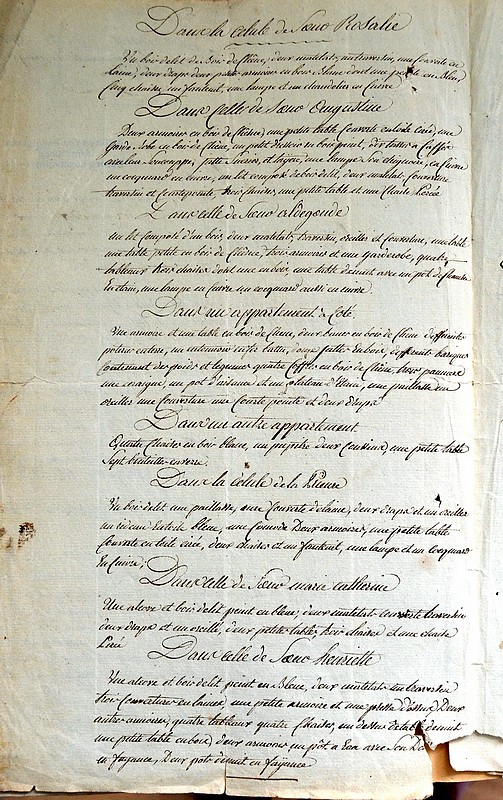 Dans la célule de Sœur Rosalie
Un bois de lit de Bois de chêne, deux matelats, un traversin, une couverte en
laine, deux draps deux petits armoires en bois blanc dont une peinte en Bleu,
Cinq chaises, un fauteuil, une lampe et un chandelier en Cuivre
Dans Celle de Sœur Augustine
Deux armoires en bois de Chêne, une petite table couverte en toile Cirée, une
Garde Robe en bois de Chêne, un petit buscou en bois peint, dix tasses a Caffée
avec leur soucouppe, jatte Sucrier, et téyere, une lampe Son eteignoir, en Cuivre
un cocquemard en Cuivre, un lit composé de bois de lit, deux matelats, Couverture
traversin et Courtepointe, trois chaises, une petite table et une Chaise Percée
Dans celle de Sœur aldegonde
Un lit composé d'un bois, deux matelats, traversin, oreiller et couverture, une table
une table petite en bois de Chêne, trois armoires et une garderobe, quatre
tableaux trois chaises dont une en bois, une table de nuit avec un pot de Chambre
En étain, une lampe en Cuivre un cocquemard aussi en cuivre.
Dans un appartement à Coté
Une armoire et une table en bois de Chêne, deux bancs en bois de Chêne differentes
poteries en terre, un entonnoir et une latte, douze jattes En bois, differents barriques
Contenant des poids et legumes quatre Coffres en bois de Chêne, trois panniers
une marque, un pot d'aisance et un plateau d'étain, une paillasse un
oreiller une Couverture une Courte pointe et deux draps
Dans un autre appartement
Quatre Chaises en bois blanc, un pupitre deux Coussins, une petite table
Sept bouteilles en verre.
Dans la célule de la Prieure
Un bois de lit une paillasse, une Couverte de laine, deux draps et un oreiller
un rideau En toile bleue, une Couverte Deux armoires, une petite table
Couverte en toile cirée, deux chaises et un fauteuil, une lampe et un cocquemard
En Cuivre,
Dans celle de Sœur marie catherine
Une alcove et bois de lit peint en bleu, deux matelats couverte traversin
deux draps et un oreille, deux petites tables, trois chaises et une chaise
Percée
Dans celle de Sœur henriette
Une alcove et bois de lit peint en Bleue, deux matelats un traversin
trois Couvertures en laines, une petite armoire et une presse d'assus, Deux
autres armoires, quatre tableaux quatre Chaises, un dessus de table de nuit
une petite table en bois, deux armoires un pôt à Eau avec Son
en fayance, Deux pots de nuit en fayance